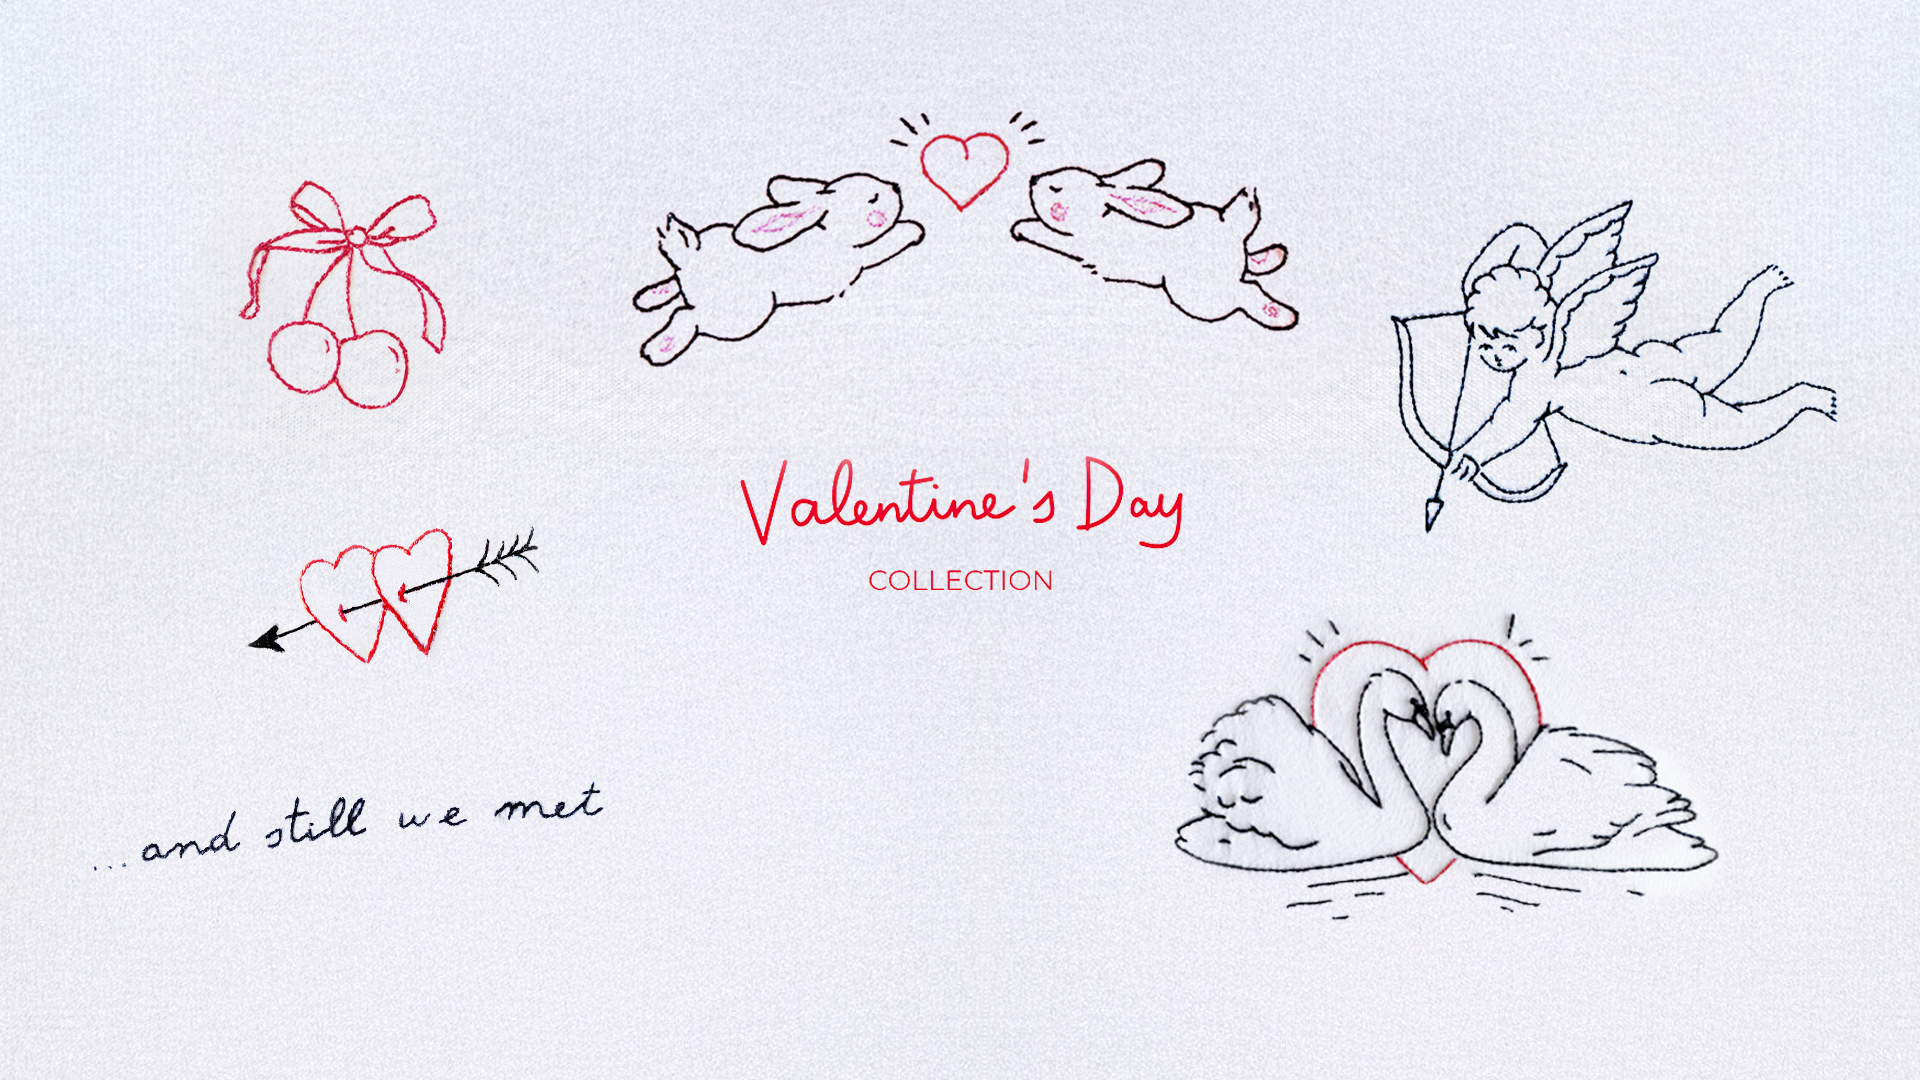 Valentine's Day
COLLECTION
...and still we met